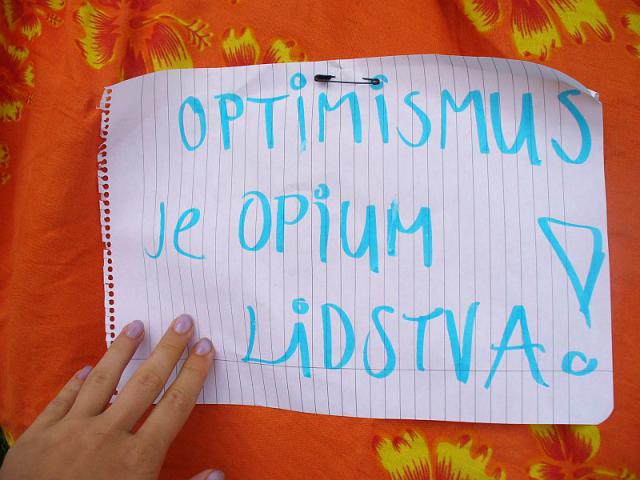 OPTIMISMUS
Je OPIUM
LIDSTVA!